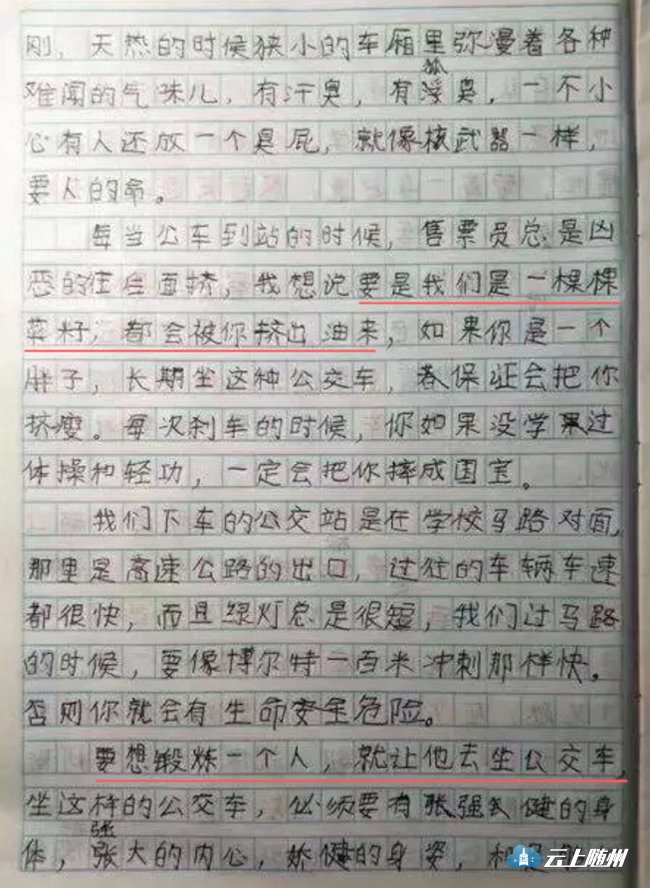 刚，天热的时候狭小的车厢里弥漫着各种
难闻的气味儿，有汗臭，有狐臭，一不小
心有人还放一个臭屁，就像核武器一样，
要人的命。
每当公车到站的时候，售票员总是凶
恶的往后面挤，我想说要是我们是一棵棵
菜籽，都会被你挤出油来，如果你是一个
胖子，长期坐这种公交车，春保证会把你
挤瘦。每次刹车的时候，你如果没学果过
体操和轻功，一定会把你摔成国宝。
我们下车的公交站是在学校马路对面，
那里是高速公路的出口，过往的车辆车速
都很快，而且绿灯总是很短，我们过马路
的时候，要像博尔特一百米冲刺那样快。
否则你就会有生命安全危险。
要想锻炼一个人，就让他去坐公交车，
坐这样的公交车，必须要有强健的身
体，强大的内心，娇健的身姿，和
云上随州